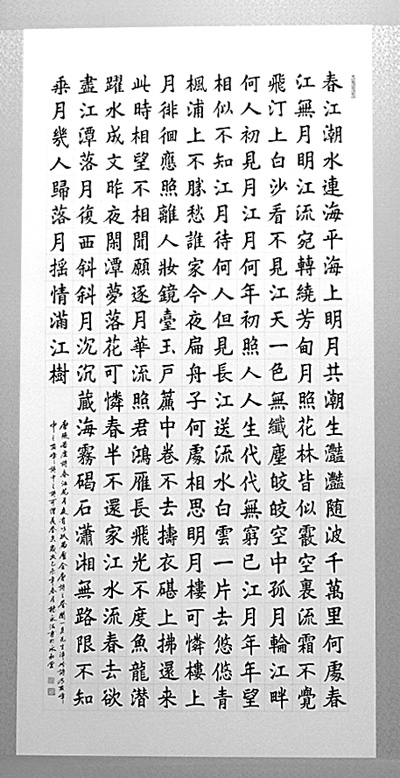 春江潮水連海平海上明月共潮生灔灔随波千萬里何處春
江無月明江流宛轉繞芳甸月照花林皆似霰空裏流霜不覺
飛汀上白沙看不見江天一色無纖塵皎皎空中孤月輪江畔
何人初見月江月何年初照人人生代代無窮已江月年年望
相似不知江月待何人但見長江送流水白雲一片去悠悠青
楓浦上不勝愁誰家今夜扁舟子何處相思明月樓可憐樓上
月徘徊應照離人妝鏡臺玉戶簾中卷不去擣衣碪上拂還來
此時相望不相聞願逐月華流照君鴻雁長飛光不度魚龍潛
躍水成文昨夜閑潭夢落花可憐春半不還家江水流春去欲
盡江潭落月復西斜斜月沉沉藏海霧碣石瀟湘無路限不知
乘月幾人歸落月搖情滿江樹